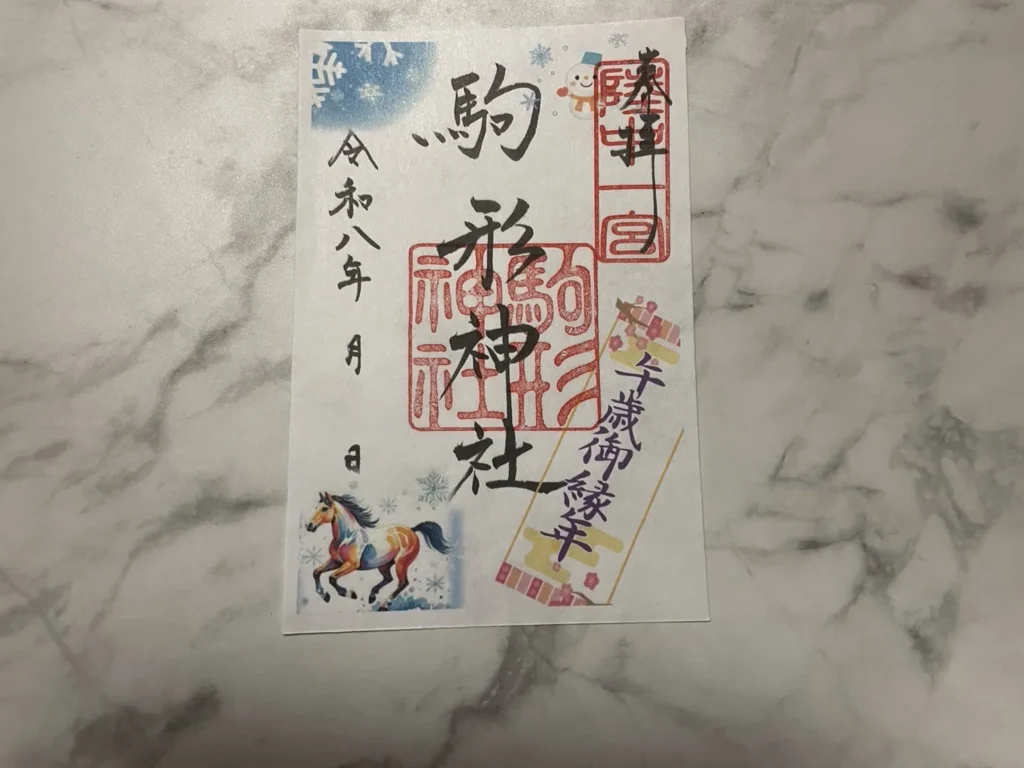 奉拝
陸中一宮
駒形神社
駒形
神社
午歳御縁年
令和八年 月 日